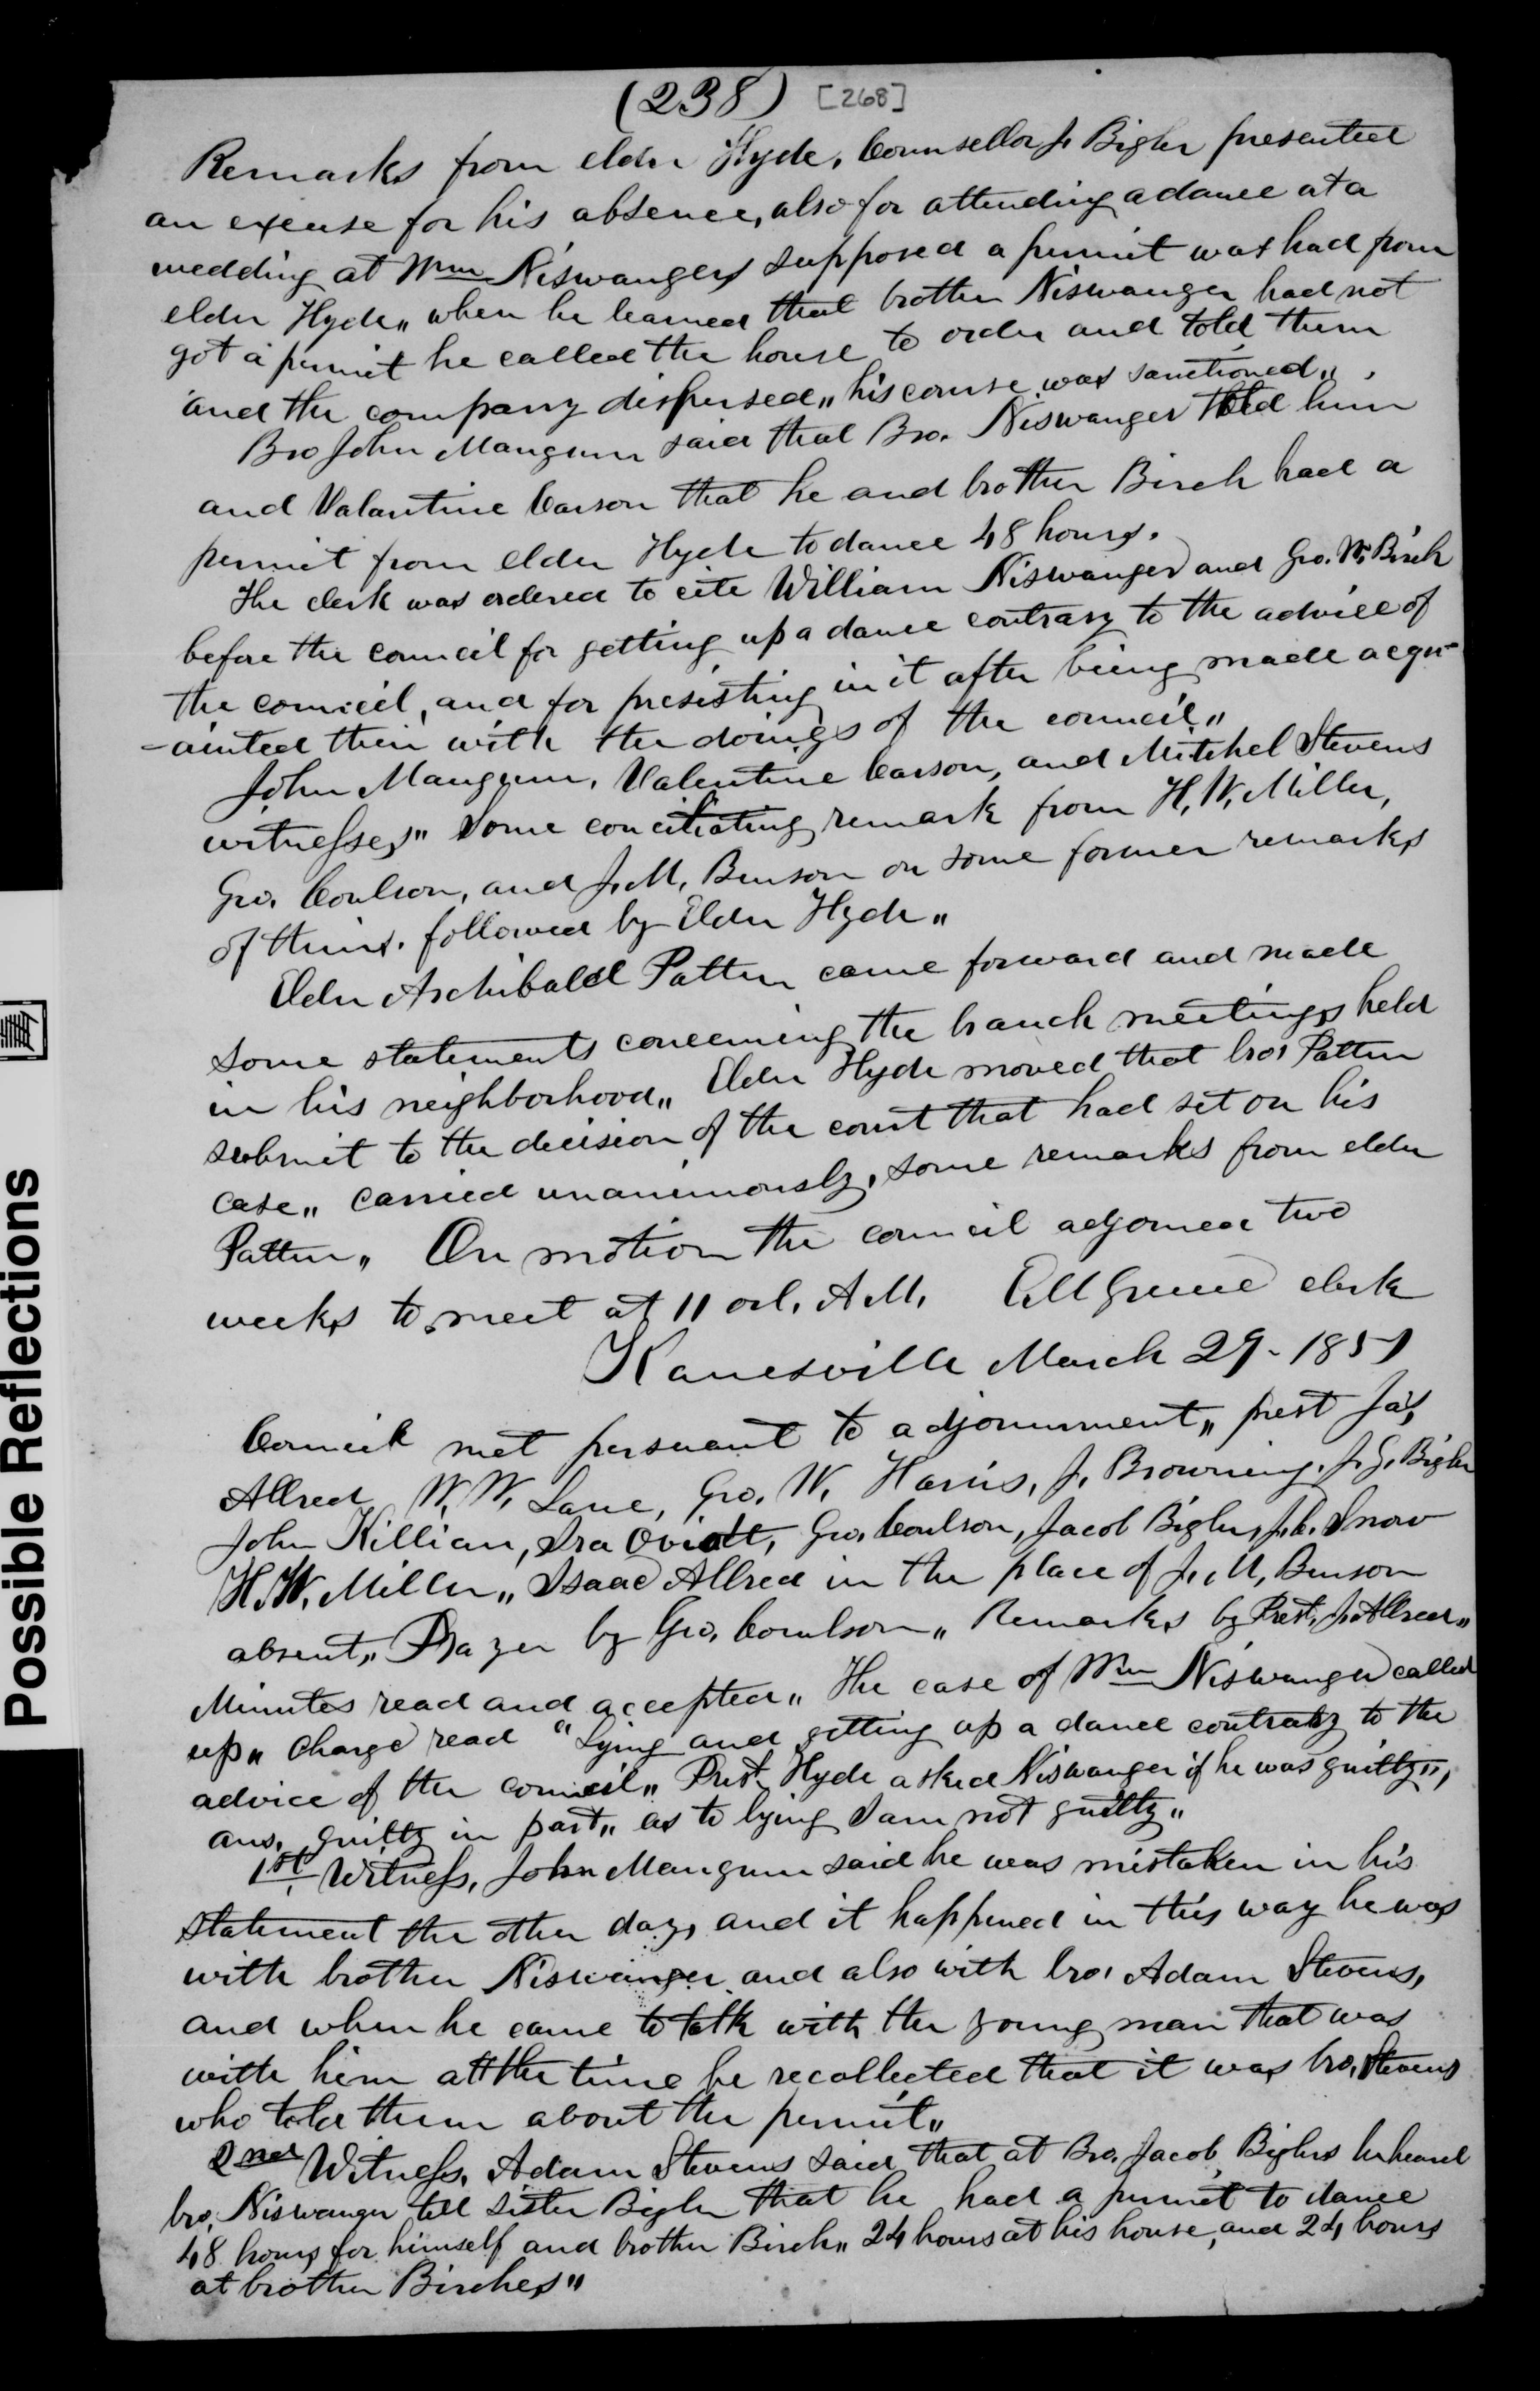 (238) [268]
Remarks from elder Hyde, Counsellor J. Bigler presented
an excuse for his absence, also for attending a dance at a
wedding at Wm Niswangers supposed a permit was had from
elder Hyde,, when he learned that brother Niswanger had not
got a permit he called the house to order and told them
and the company dispersed,, his course was sanctioned,,
Bro John Mangum said that Bro. Niswanger told him
and Valantine Carson that he and brother Birch had a
permit from elder Hyde to dance 48 hours.
The clerk was ordered to cite William Niswanger and Geo. W. Birch
before the council for getting up a dance contrary to the advice of
the council, and for presisting in it after being made acqu-
-ainted their with the doings of the council,,
John Mangum, Valentine Carson, and Mitchel Stevens
witnesses,, Some conciliating remark from H. W. Miller,
Geo. Coulson, and J. M. Benson on some former remarks
of theirs. followed by Elder Hyde,,
Elder Archibald Patten came forward and made
some statements concerning the branch meetings held
in his neighborhood,, Elder Hyde moved that bro. Patten
submit to the decision of the court that had set on his
case,, carried unanimously, some remarks from elder
Patten,, On motion the council adjorned two
weeks to meet at 11 ocl. A.M. E M Greene clerk
Kanesville March 29 - 1851
Council met persuant to adjournment,, prest Jas,
Allred, W. W. Lane, Geo. W. Harris, J. Browning, J. G. Bigler
John Killian, Ira Oviatt, Geo. Coulson, Jacob Bigler, J. C. Snow
H. W. Miller,, Isaac Allred in the place of J. M. Benson
absent,, Prayer by Geo. Coulson,, Remarks by Prest. J. Allred,,
Minutes read and accepted,, The case of Wm Niswanger called
up,, Charge read "Lying and getting up a dance contrary to the
advice of the council,, Prest. Hyde asked Niswanger if he was guilty,,
ans. guilty in part,, as to lying I am not guilty,,
1st. Witness, John Mangum said he was mistaken in his
statement the other day, and it happened in this way he was
with brother Niswanger and also with bro. Adam Stevens,
and when he came to talk with the young man that was
with him at the time he recollected that it was bro. Stevens
who told them about the permit,,
2nd Witness. Adam Stevens said that at Bro. Jacob Biglers he heard
bro. Niswanger tell sister Bigler that he had a permit to dance
48 hours for himself and brother Birch,, 24 hours at his house, and 24 hours
at brother Birches,,
Possible Reflections